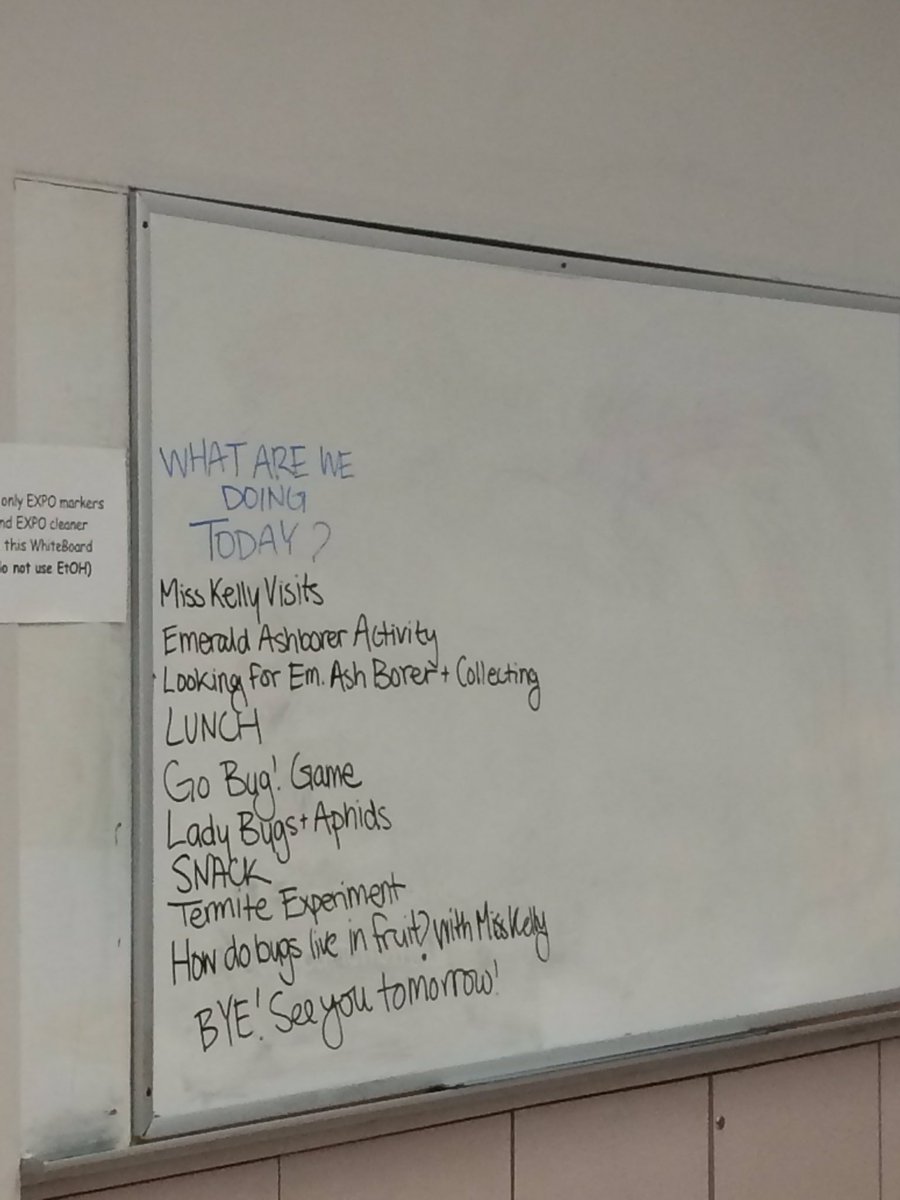 only EXPO markers
nd EXPO cleaner
this WhiteBoard
o not use EtOH)
WHAT ARE WE
DOING
TODAY?
Miss Kelly Visits
Emerald Ashborer Activity
Looking for Em. Ash Borer + Collecting
LUNCH
Go Bug! Game
Lady Bugs + Aphids
SNACK
Termite Experiment
How do bugs live in fruit? with Miss Kelly
BYE! See you tomorrow!